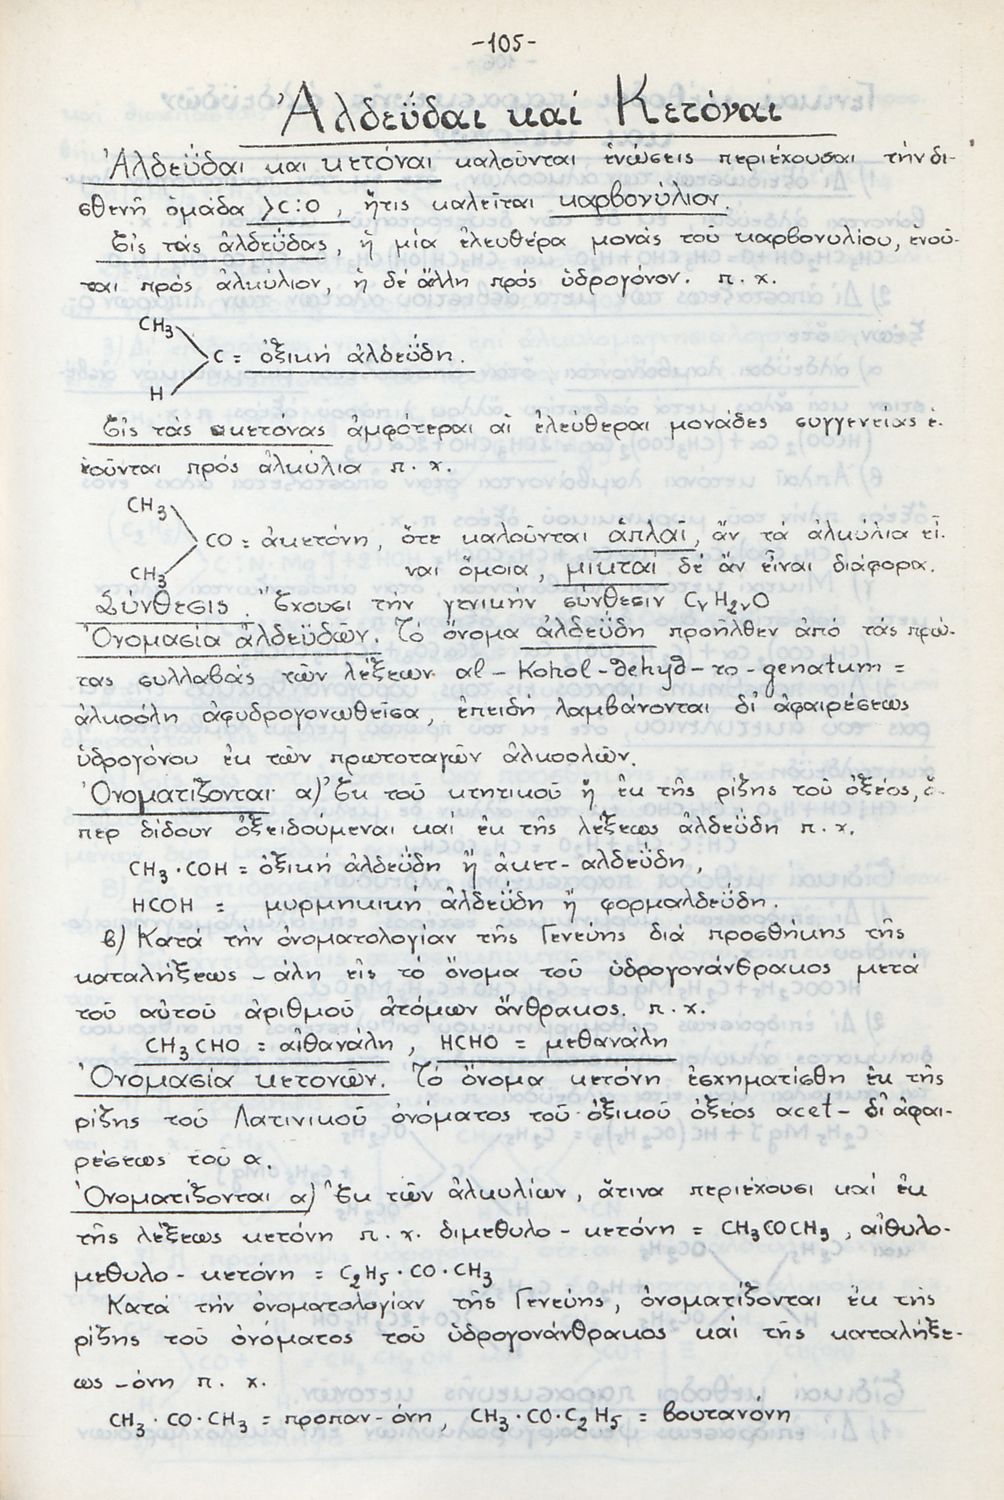 -105-
Ἀλδεΰδαι καί Κετόναι
Ἀλδεΰδαι και κετόναι καλοῦνται ἑνώσεις περιέχουσαι τήν δι-
σθενῆ ὁμάδα >C:O , ἥτις καλεῖται καρβονύλιον.
Εἰς τάς ἀλδεΰδας, ἡ μία ἐλευθέρα μονάς τοῦ καρβονυλίου, ἑνοῦ-
ται πρός ἀλκύλιον, ἡ δέ ἄλλη πρός ὑδρογόνον. π.χ.
CH3
C = ὀξική ἀλδεΰδη.
H
Εἰς τάς κετόνας ἀμφότεραι αἱ ἐλεύθεραι μονάδες συγγενείας ἑ-
νοῦνται πρός ἀλκύλια π.χ.
CH3
CO = ἀκετόνη, ὅτε καλοῦνται ἁπλαῖ, ἄν τά ἀλκύλια εἶ-
CH3 ναι ὅμοια, μικταί δέ ἄν εἶναι διάφορα.
Σύνθεσις. Ἔχουσι τήν γενικήν σύνθεσιν CνH2νO
Ὀνομασία ἀλδεΰδῶν. Τό ὄνομα ἀλδεΰδη προῆλθεν ἀπό τάς πρώ-
τας συλλαβάς τῶν λέξεων al-Kohol-dehyd-to-genatum =
ἀλκοόλη ἀφυδρογονωθεῖσα, ἐπειδή λαμβάνονται δι' ἀφαιρέσεως
ὑδρογόνου ἐκ τῶν πρωτοταγῶν ἀλκοολῶν.
Ὀνοματίζονται α) Ἐκ τοῦ κτητικοῦ ἤ ἐκ τῆς ρίζης τοῦ ὀξέος, ὅ-
περ δίδουν ὀξειδούμεναι καί ἐκ τῆς λέξεως ἀλδεΰδη π.χ.
CH3·COH = ὀξική ἀλδεΰδη ἤ ἀκετ-αλδεΰδη,
HCOH = μυρμηκική ἀλδεΰδη ἤ φορμαλδεΰδη.
β) Κατά τήν ὀνοματολογίαν τῆς Γενεύης διά προσθήκης τῆς
καταλήξεως -άλη εἰς τό ὄνομα τοῦ ὑδρογονάνθρακος μετά
τοῦ αὐτοῦ ἀριθμοῦ ἀτόμων ἄνθρακος. π.χ.
CH3CHO = αἰθανάλη, HCHO = μεθανάλη
Ὀνομασία κετονῶν. Τό ὄνομα κετόνη ἐσχηματίσθη ἐκ τῆς
ρίζης τοῦ Λατινικοῦ ὀνόματος τοῦ ὀξικοῦ ὀξέος acet- δι' ἀφαι-
ρέσεως τοῦ α.
Ὀνοματίζονται α) Ἐκ τῶν ἀλκυλίων, ἅτινα περιέχουσι καί ἐκ
τῆς λέξεως κετόνη π.χ. διμεθυλο-κετόνη = CH3COCH3, αἰθυλο-
μεθυλο-κετόνη = C2H5·CO·CH3
Κατά τήν ὀνοματολογίαν τῆς Γενεύης, ὀνοματίζονται ἐκ τῆς
ρίζης τοῦ ὀνόματος τοῦ ὑδρογονάνθρακος καί τῆς καταλήξε-
ως -όνη π.χ.
CH3·CO·CH3 = προπαν-όνη, CH3·CO·C2H5 = βουτανόνη